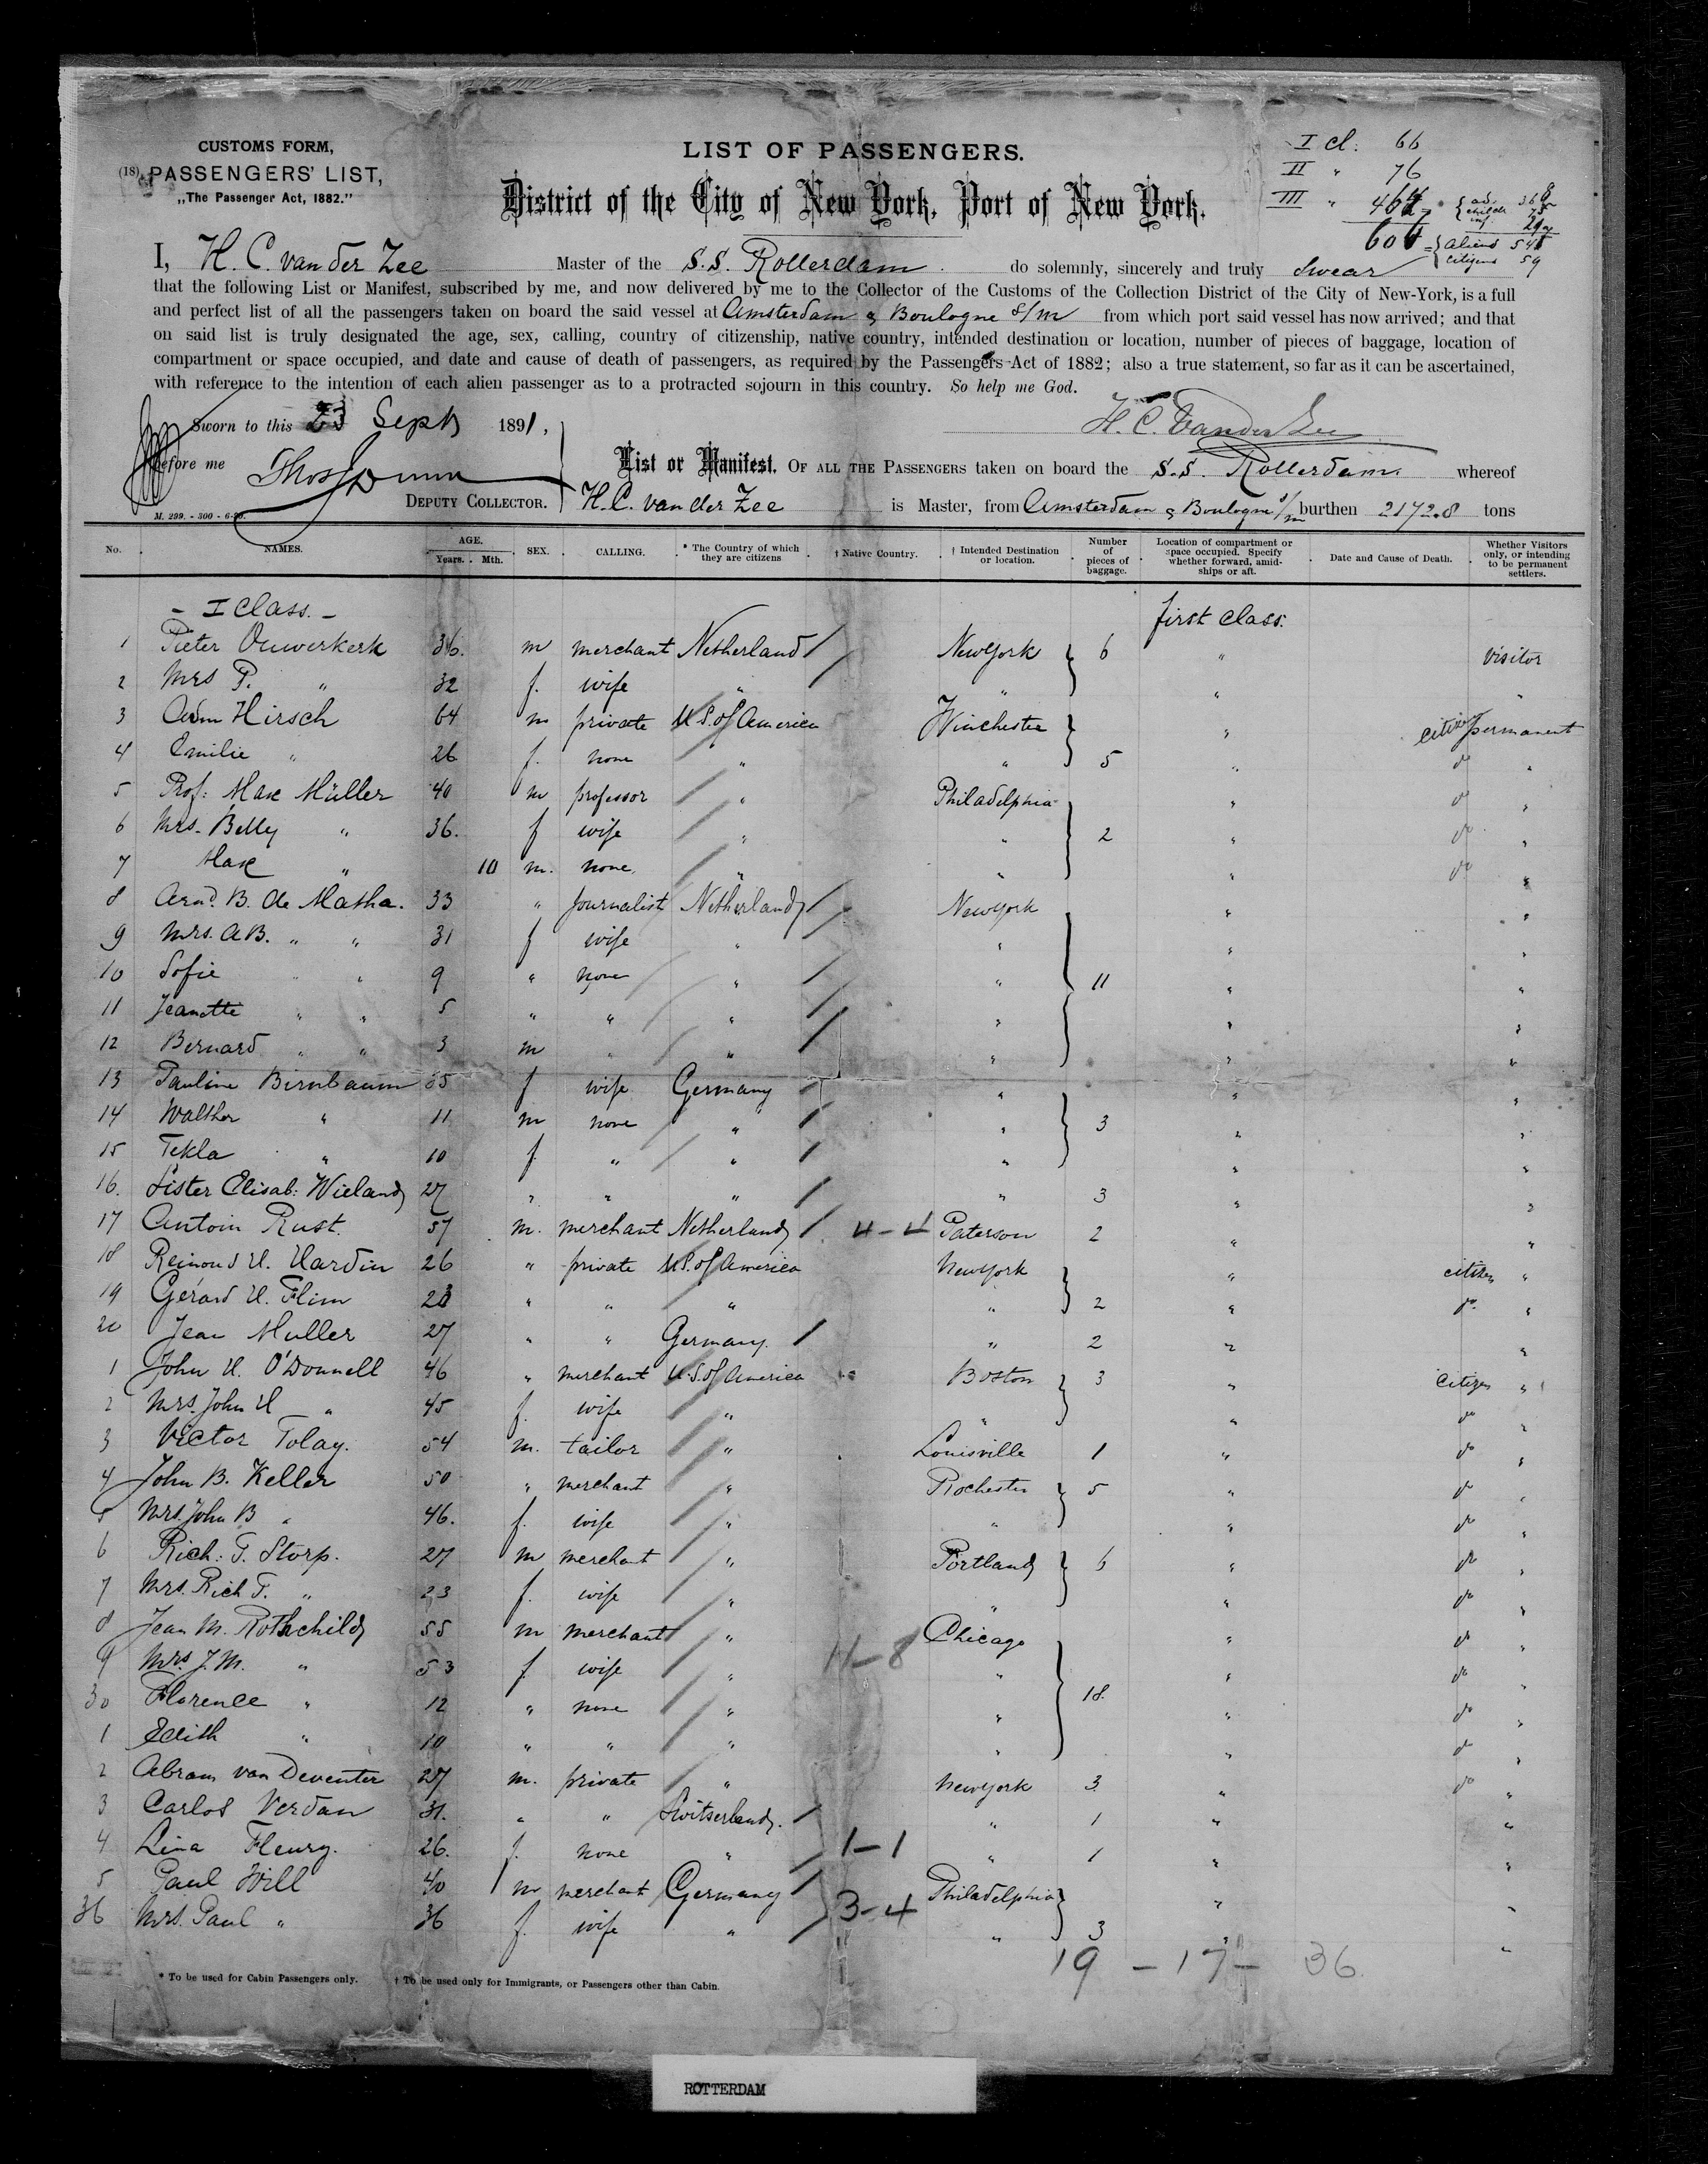 CUSTOMS FORM,
(18) PASSENGERS' LIST,
„The Passenger Act, 1882."
LIST OF PASSENGERS.
District of the City of New York, Port of New York.
I cl: 66
II " 76
III "
aliens
citizens 59
I, H. C. van der Zee Master of the S.S. Rotterdam do solemnly, sincerely and truly swear
that the following List or Manifest, subscribed by me, and now delivered by me to the Collector of the Customs of the Collection District of the City of New-York, is a full
and perfect list of all the passengers taken on board the said vessel at Amsterdam & Boulogne s/m from which port said vessel has now arrived; and that
on said list is truly designated the age, sex, calling, country of citizenship, native country, intended destination or location, number of pieces of baggage, location of
compartment or space occupied, and date and cause of death of passengers, as required by the Passengers Act of 1882; also a true statement, so far as it can be ascertained,
with reference to the intention of each alien passenger as to a protracted sojourn in this country. So help me God.
Sworn to this 23 Sept 1891,
H. C. Van der Zee
before me
DEPUTY COLLECTOR.
M. 299. - 300 - 6-90.
List or Manifest, OF ALL THE PASSENGERS taken on board the S.S. Rotterdam whereof
H. C. van der Zee is Master, from Amsterdam & Boulogne s/m burthen 2172.8 tons
No. NAMES. AGE. Years. Mth. SEX. CALLING. * The Country of which they are citizens † Native Country. † Intended Destination or location. Number of pieces of baggage. Location of compartment or space occupied. Specify whether forward, amidships or aft. Date and Cause of Death. Whether Visitors only, or intending to be permanent settlers.
- I Class. - first class.
1 Pieter Ouwerkerk 36. m merchant Netherland New York 6 " visitor
2 Mrs P. " 32 f. wife " " " "
3 Adm Hirsch 64 m private U.S. of America Winchester " citizen permanent
4 Emilie " 26 f. none " " 5 " do "
5 Prof: Max Müller 40 m professor " Philadelphia " do "
6 Mrs. Betty " 36. f wife " " 2 " do "
7 Max " 10 m. none " " " do "
8 Arnd. B. de Mattha. 33 " Journalist Netherland New York " "
9 Mrs. A B. " " 31 f wife " " " "
10 Sofie " " 9 " none " " 11 " "
11 Jeanette " " 5 " " " " " "
12 Bernard " " 3 m " " " " "
13 Pauline Birnbaum f wife Germany " " "
14 Walther " 11 m none " " 3 " "
15 Tekla " 10 f. " " " " "
16. Sister Elisab: Wieland 27 " " " " 3 " "
17 Antoin Rust. 57 m. merchant Netherland 4-4 Paterson 2 " "
18 Reinond H. Hardin 26 " private U.S. of America New York " citizen "
19 Gérard H. Flim " " " " 2 " do "
20 Jean Muller 27 " " Germany. " 2 " "
1 John H. O'Donnell 46 " merchant U.S. of America Boston 3 " citizen "
2 Mrs. John H " 45 f. wife " " " do "
3 Victor Tolay. 54 m. tailor " Louisville 1 " do "
4 John B. Keller 50 " merchant " Rochester 5 " do "
5 Mrs. John B " 46. f. wife " " " do "
6 Rich: T. Storp. 27 m merchant " Portland 6 " do "
7 Mrs. Rich T. " 23 f. wife " " " do "
8 Jean M. Rothchild 55 m merchant " Chicago " do "
9 Mrs. J. M. " 53 f. wife " 11-8 " " do "
30 Florence " 12 " none " " 18. " do "
1 Edith " 10 " " " " " do "
2 Abram van Deventer 27 m. private " New York 3 " do "
3 Carlos Verdan 31. " " Switserland. " 1 " "
4 Lina Fleury. 26. f. none " 1-1 " 1 " "
5 Paul Will 40 m merchant Germany Philadelphia " "
36 Mrs. Paul " 36 f. wife " 3-4 " 3 " "
19 - 17 - 36.
* To be used for Cabin Passengers only. † To be used only for Immigrants, or Passengers other than Cabin.
ROTTERDAM